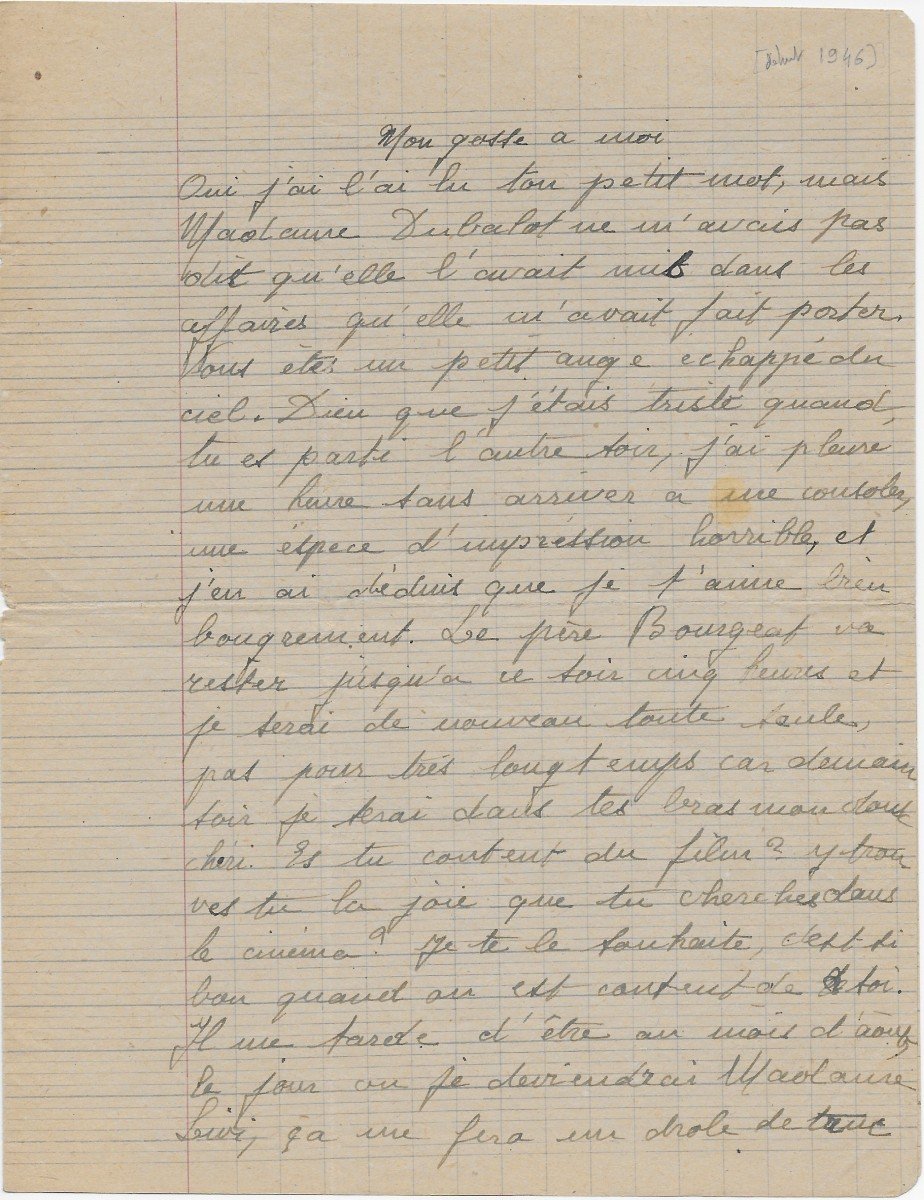 [début 1946]
Mon gosse a moi
Oui j'ai l'ai lu ton petit mot, mais
Madame Dubalot ne m'avais pas
dit qu'elle l'avait mit dans les
affaires qu'elle m'avait fait porter.
Vous êtes un petit ange echappé du
ciel. Dieu que j'étais triste quand
tu es parti l'autre soir, j'ai pleuré
une heure sans arriver a me consoler,
une éspece d'impréssion horrible, et
j'en ai déduis que je t'aime bien
bougrement. Le père Bourgeat va
rester jusqu'a ce soir cinq heures et
je serai de nouveau toute seule,
pas pour très longtemps car demain
soir je serai dans tes bras mon doux
chéri. Es tu content du film? y trou
ves tu la joie que tu cherches dans
le cinéma? Je te le souhaite, c'est si
bon quand on est content de soi.
Il me tarde d'être au mois d'âout,
le jour ou je deviendrai Madame
Livi, ça me fera un drole de truc